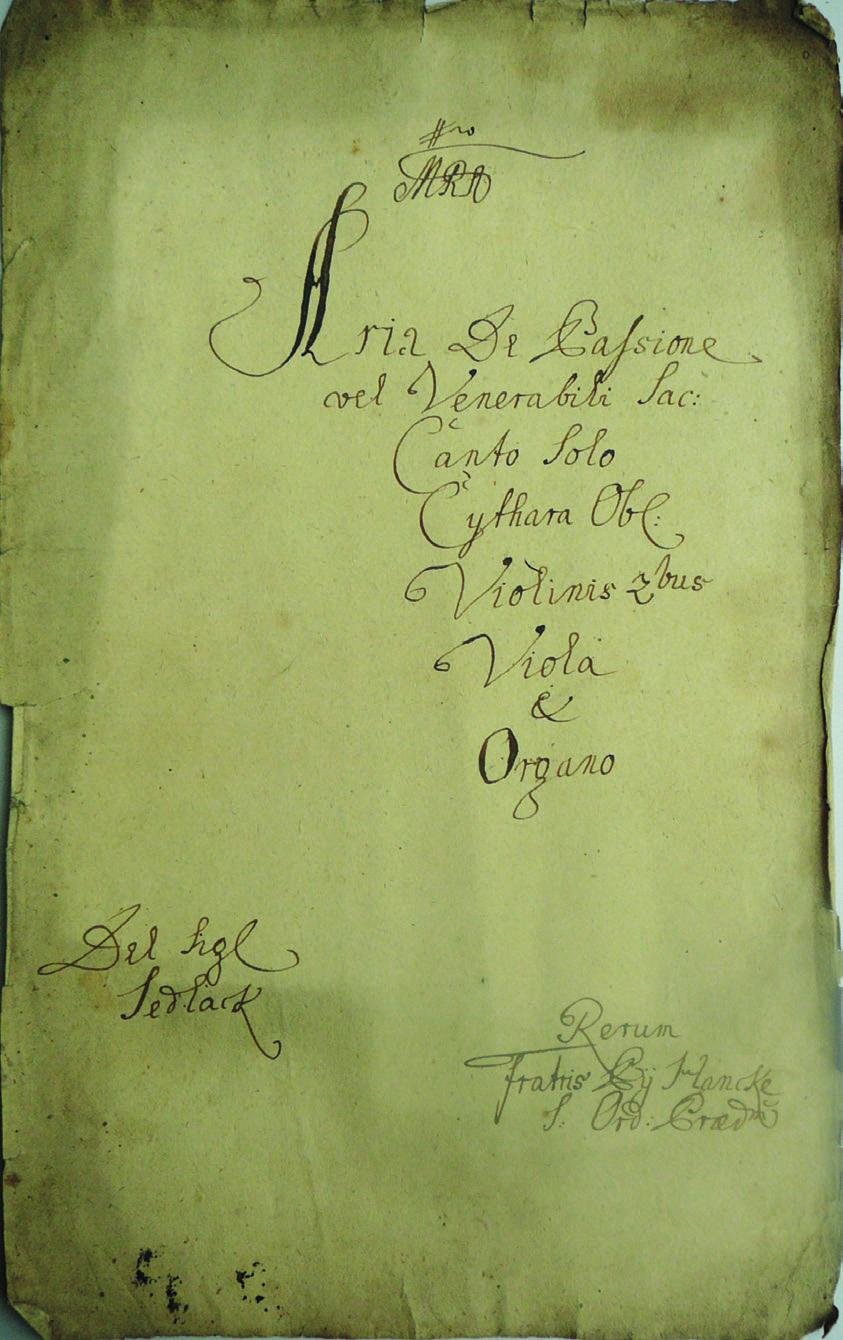 MRA
Aria De Passione
vel Venerabili Sac:
Canto Solo
Cythara Obl:
Violinis 2bus
Viola
&
Organo
Del Sigl
Sedlack
Rerum
fratris Pij Hancke
S. Ord: Præd